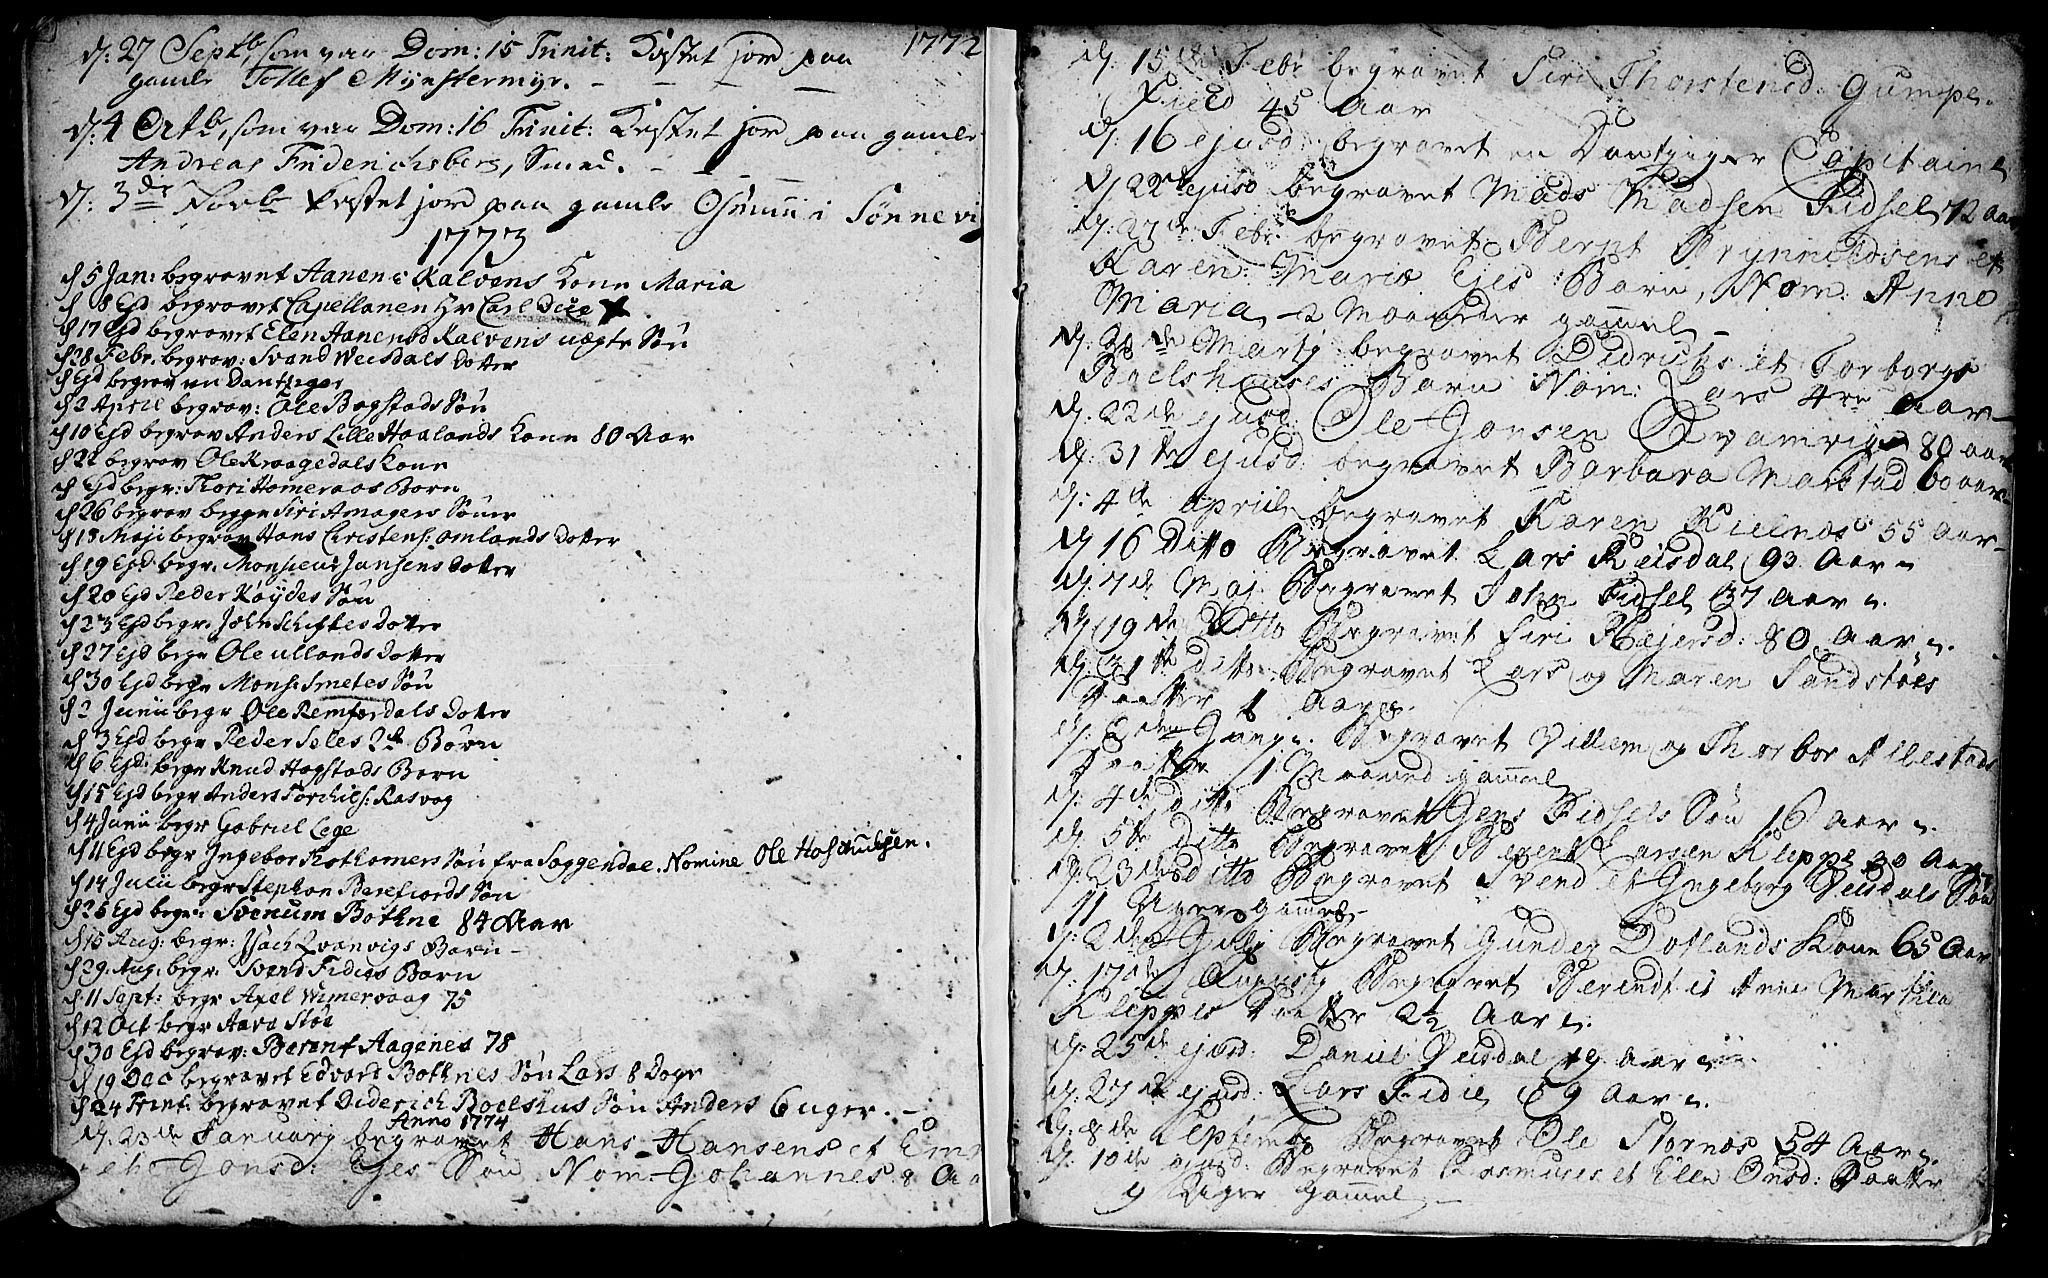 1772
d: 27 Septb, som var Dom: 15 Trinit: Kastet jord paa
gamle Tollef Mÿnstermÿr.
d: 4 Octb, som var Dom: 16 Trinit: Kastet jord paa gamle
Andreas Friderichsberg, Smed.
d: 3de Novb Kastet jord paa gamle Osmun i Sønnevig
1773
d 5 Jan: begravet Aanen Kalvens Kone Maria
d 8 Ejd begravet Capellanen Hr Carl Due
d 17 Ejd begravet Elen Aanensd Kalvens uægte Søn
d 28 Febr. begrav: Svend Weisdals Dotter
d Ejd begrav en Dantziger
d 2 April begrav: Ole Bogstads Søn
d 10 Ejd begrav Anders Lille Haalands Kone 80 Aar
d 22 begrav Ole Kraagedals Kone
d Ejd begr: Thori Homeraas Born
d 26 begrav begge Siri Amagers Søner
d 13 Maji begrav Hans Christens: omlands Dotter
d 19 Ejd begr. Monsieur Jansens Dotter
d 20 Ejd Peder Køydes Søn
d 23 Ejd begr. John Schiftes Dotter
d 27 Ejd begr Ole Ullands Dotter
d 30 Ejd begr Mons: Smetes Søn
d 2 Junii begr Ole Remfordals Dotter
d 3 Ejd begr Peder Seles 2de Børn
d 6 Ejd: begr Knud Hogstads Born
d 15 Ejd begr Anders Torchils: Rasvog
d 4 Junii begr Gabriel Lege
d 11 Ejd begr Ingebor Rothomers Søn fra Soggendal. Nomine Ole
d 14 Julii begr Stephan Berefiords Søn
d 26 Ejd begr: Svenum Bothne 84 Aar
d 15 Aug: begr: Isach Qvanvigs Barn
d 29. Aug. begr. Svend Fidies Barn
d. 11 Sept: begr Axel Wimervaag 75
d 12 Oct begr Aava Støe
d 30 Ejd begrav: Berent Aagenes 78
d 19 Dec begravet Edvard Bothnes Søn Lars 8 Dage
d 24 begravet Diderich Boelshus Søn Anders 6 uger.
Anno 1774
d: 23de Januarÿ begravet Hans Hansens et
Jonsd: Ejes Søn Nom: Johannes 8
d: 15de Febr begravet Siri Thorstensd: Gumpe
Field 45 Aar
d: 16 ejusd: begravet en Dantziger Capitaine
d 22de ejusd begravet Mads Madsen Fidsel 72 Aar
d: 27de Febr: begravet Bernt Brynnildsens et
Karen Mariæ Ejes Barn, Nom: Anne
Maria 2 Maaneder gammel
d: de Martÿ begravet Didrichs et Torborgs
Boelshuuses Barn Nom: Lars 4re Aar
d: 22de ejusd: Ole Jonsen Qvamvig 80 aar
d: 31te ejusd: begravet Barbara Markstad 60 aar
d: 4de Aprile begravet Karen Kielnæs 55 Aar
d 16 Ditto Begravet Lars Reisdal 93 Aar
d: 7de Maj Begravet John Fidsel 37 Aar
d 19de Ditto Begravet Siri Rejersd: 80 Aar
d: 31te Ditto Begravet Lars og Maren Sandstøes
Daatter 1 Aar
d: 2den Junÿ. Begravet Villem og Thorbor Allestads
Daatter 1 Maaned gammel
d: 4de ditto Begravet Jens Fidsels Søn 16 Aar
d. 5te Ditto Begravet Berent Larsen Kleppe 30 Aar
d. 23de ditto Begravet Svend et Ingeborg Veisdals Søn
11 Uger gammel
d: 2de Julÿ Begravet Gunder Dotlands Kone 65 Aar
d: 17de Augustÿ Begravet Berendt et Anne Martha
Kleppes Daatter 2½ Aar
d: 25de ejusd: Daniel Veisdal 19 aar
d: 27de ejusd: Lars Fidie 69 Aar
d: 8de Septembr Begravet Ole Stornæs 54 Aar
d: 10de ejusd: Begravet Rasmuses et Ellen Onsd: Daatter
9 Uger Gammel